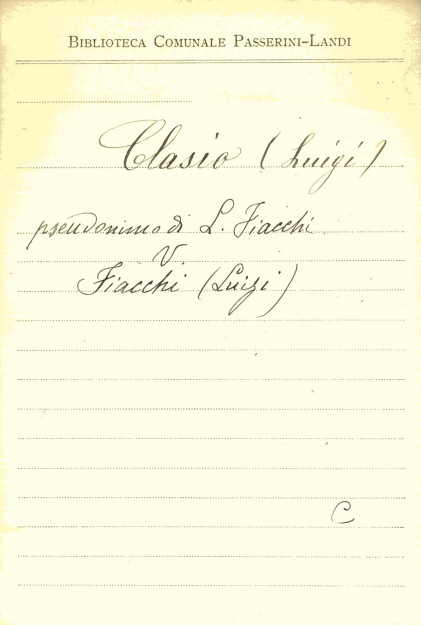 BIBLIOTECA COMUNALE PASSERINI-LANDI
Clasio (Luigi)
pseudonimo di L. Fiacchi
V.
Fiacchi (Luigi)
C